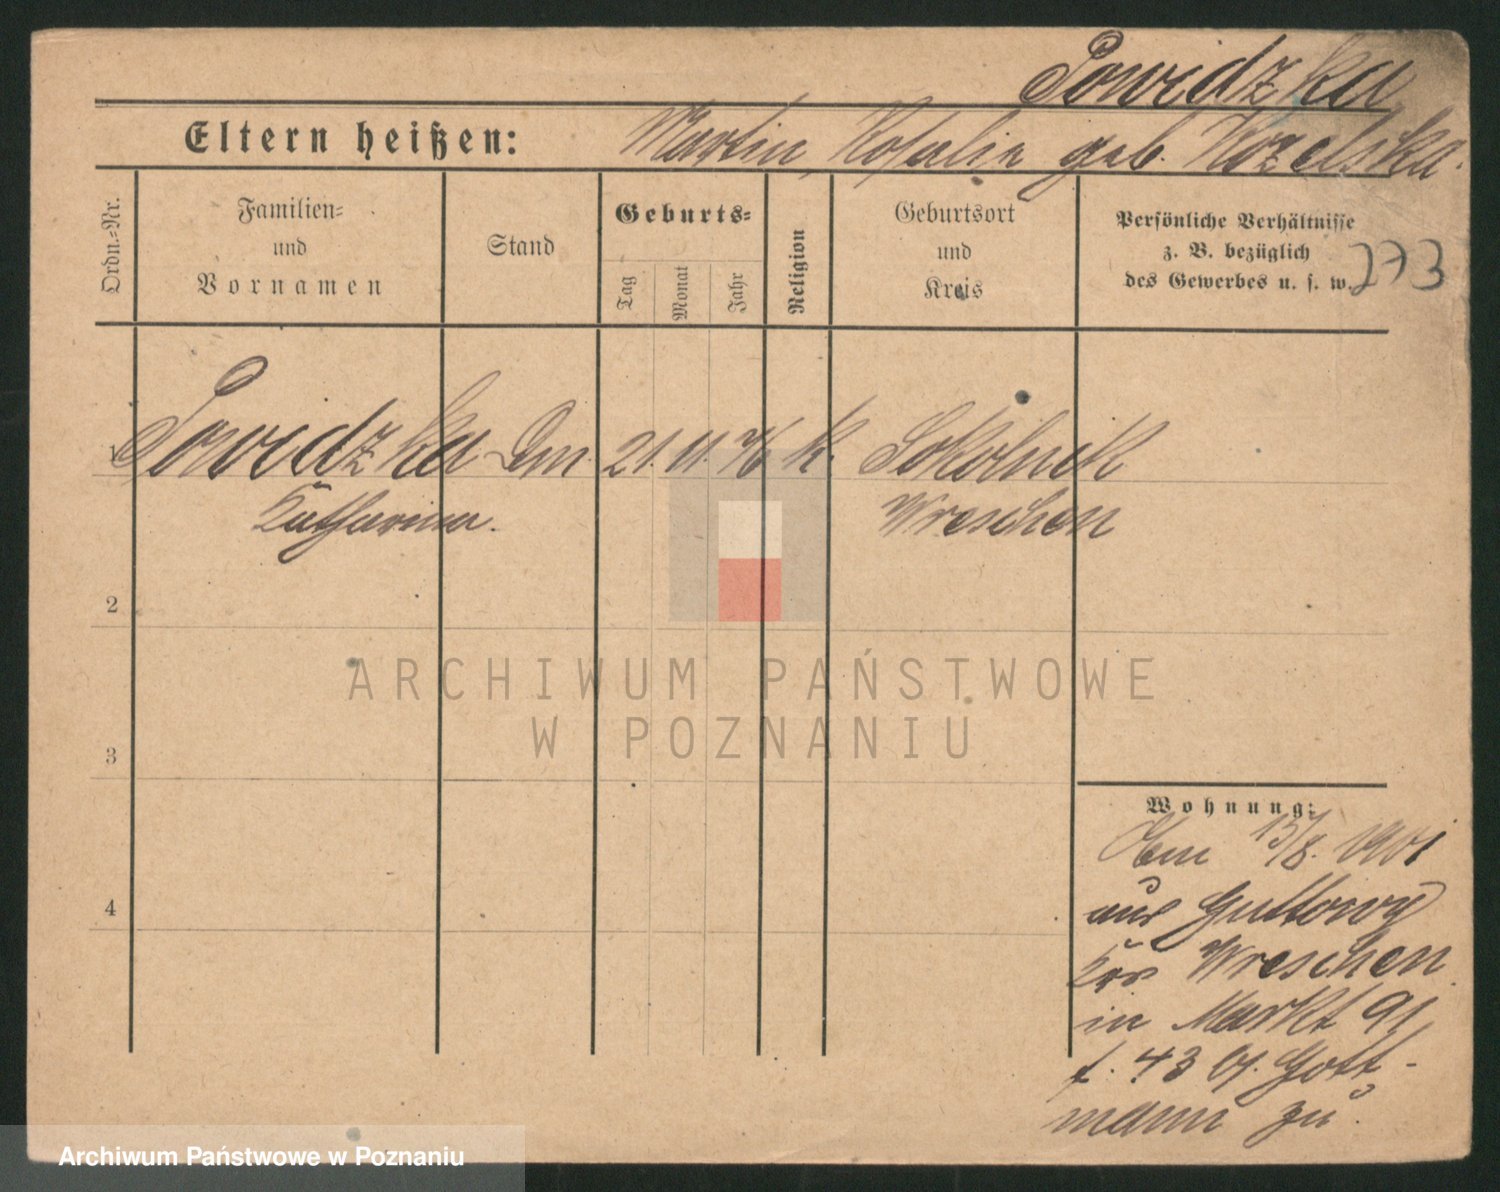 Powidzka
Eltern heißen: Martin, Rosalie geb. Kozelska.
Ordn.-Nr.
Familien-
und
Vornamen
Stand
Geburts-
Tag
Monat
Jahr
Religion
Geburtsort
und
Kreis
Persönliche Verhältnisse
z. B. bezüglich
des Gewerbes u. s. w.
273
1 Powidzka Dm. 21. 11. 76 k. Sokolnik
Katharina. Wreschen
2
3
4
ARCHIWUM PAŃSTWOWE
W POZNANIU
Wohnung:
15/8. 1901
aus Guttowy
Krs Wreschen
in Markt 91
f. 43 bj. Gott-
mann zu.
Archiwum Państwowe w Poznaniu